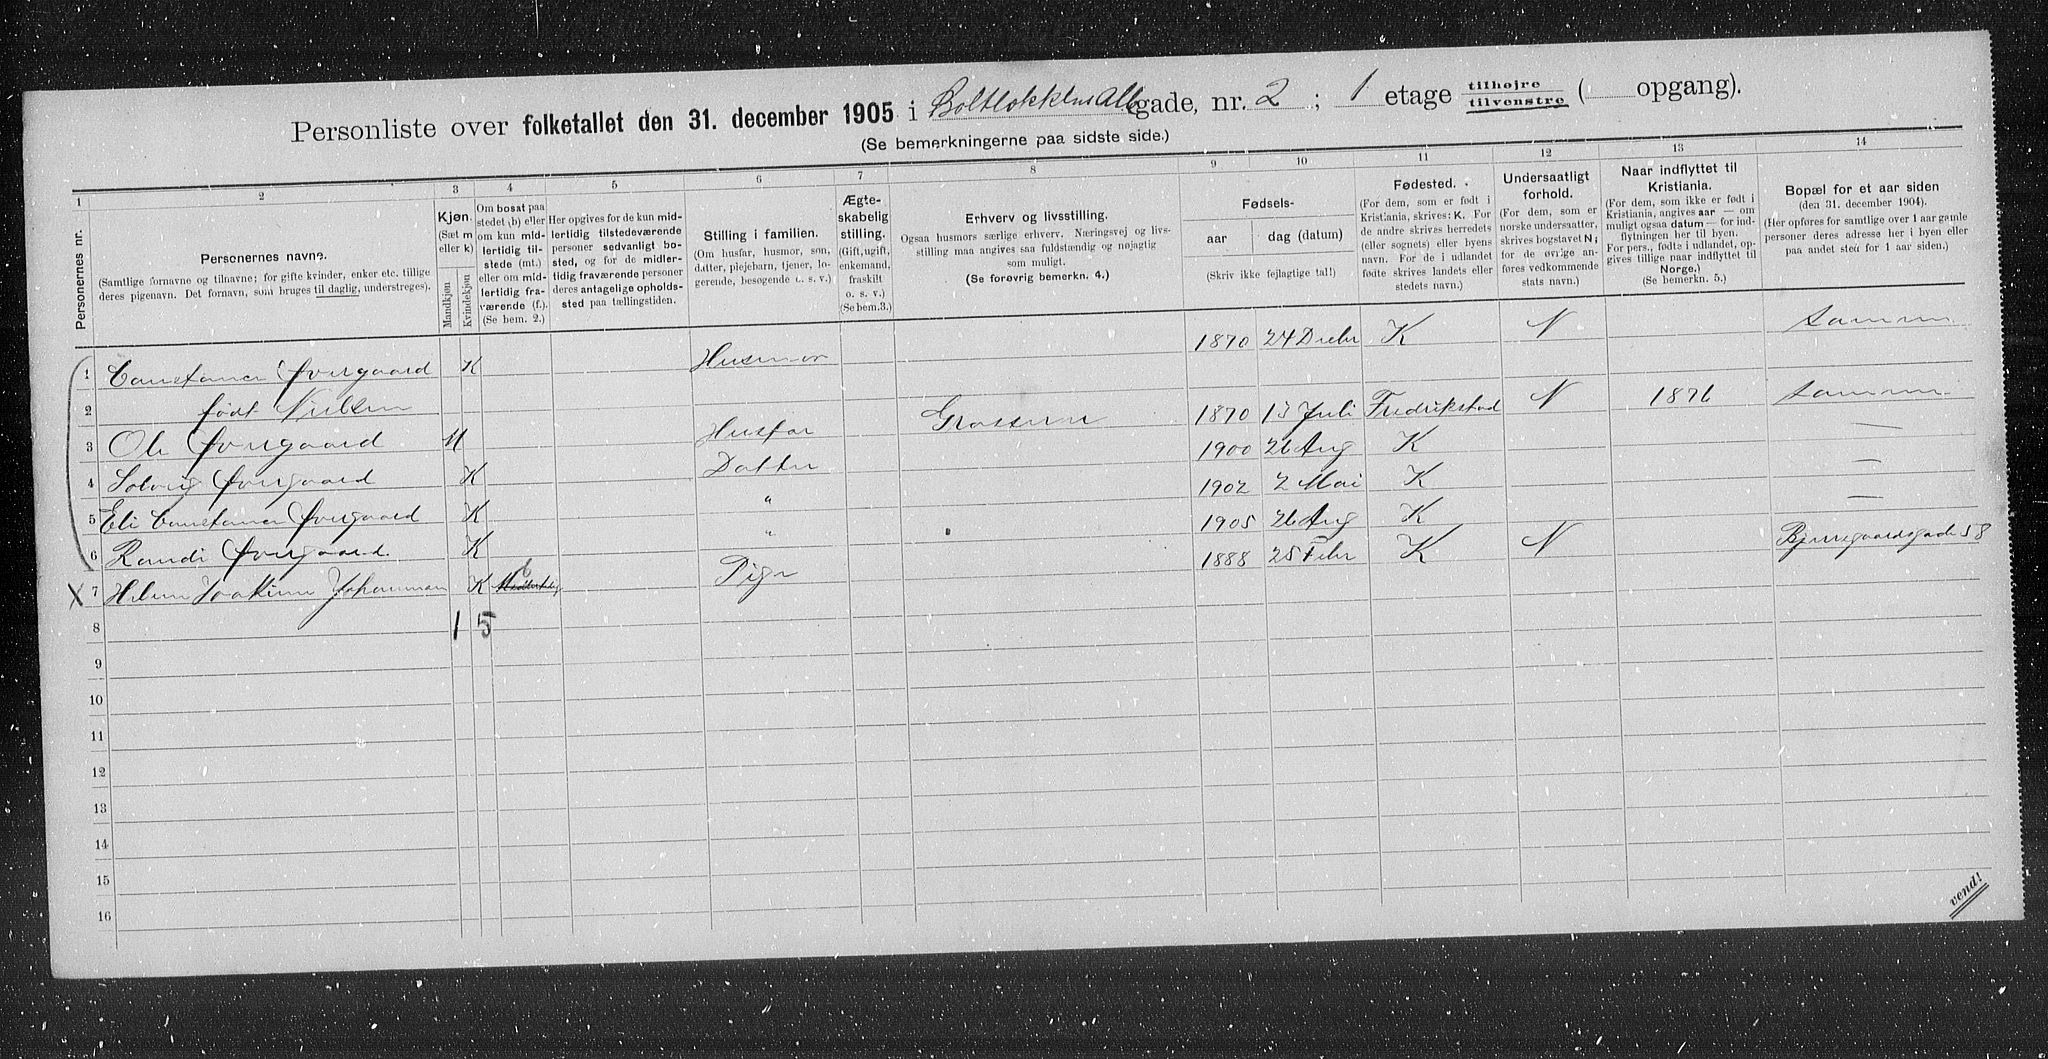 Personliste over folketallet den 31. december 1905 i Boltløkkens Alle gade, nr. 2 ; 1 etage tilhøjre tilvenstre ( opgang).
(Se bemærkningerne paa sidste side.)
1 2 3 4 5 6 7 8 9 10 11 12 13 14
Personernes nr.
Personernes navne.
(Samtlige fornavne og tilnavne; for gifte kvinder, enker etc. tillige
deres pigenavn. Det fornavn, som bruges til daglig, understreges).
Kjøn.
(Sæt m
eller k)
Mandkjøn
Kvindekjøn
Om bosat paa
stedet (b) eller
om kun midlertidig
tilstede (mt.)
eller om midlertidig
fraværende (f.).
(Se bem. 2.)
Her opgives for de kun midlertidig
tilstedeværende
personer sedvanligt bosted,
og for de midlertidig
fraværende personer
deres antagelige opholdssted
paa tællingstiden.
Stilling i familien.
(Om husfar, husmor, søn,
datter, plejebarn, tjener, logerende,
besøgende o. s. v.)
Ægteskabelig
stilling.
(Gift, ugift,
enkemand,
fraskilt
o. s. v.)
(Se bem. 3.)
Erhverv og livsstilling.
Ogsaa husmors særlige erhverv. Næringsvej og livsstilling
maa angives saa fuldstændig og nøjagtig
som muligt.
(Se forøvrig bemerkn. 4.)
Fødsels-
aar dag (datum)
(Skriv ikke fejlagtige tal!)
Fødested.
(For dem, som er født i
Kristiania, skrives: K. For
de andre skrives herredets
(eller sognets) eller byens
navn. For de i udlandet
fødte skrives landets eller
stedets navn.)
Undersaatligt
forhold.
(For dem, som er
norske undersaatter,
skrives bogstavet N;
for de øvrige anføres
vedkommende
stats navn.)
Naar indflyttet til
Kristiania.
(For dem, som ikke er født i
Kristiania, angives aar — om
muligt ogsaa datum — for indflytningen
her til byen.
For pers., fødte i udlandet, opgives
tillige naar indflyttet til
Norge.)
(Se bemerkn. 5.)
Bopæl for et aar siden
(den 31. december 1904).
(Her opføres for samtlige over 1 aar gamle
personer deres adresse her i byen eller
paa andet sted for 1 aar siden.)
1 Constance Overgaard K Husmor 1870 24 Decbr K N samme
2 født Nielsen
3 Ole Overgaard M Husfar Grosserer 1870 13 Juli Fredrikstad N 1876 samme
4 Solveig Overgaard K Datter 1900 26 Aug K —
5 Eli Constance Overgaard K " 1902 2 Mai K —
6 Randi Overgaard K " 1905 26 Aug K —
X 7 Helene Joakime Johannesen K b Pige 1888 25 Febr K N Bjerregaardsgade 58
8 1 5
9
10
11
12
13
14
15
16
vend!